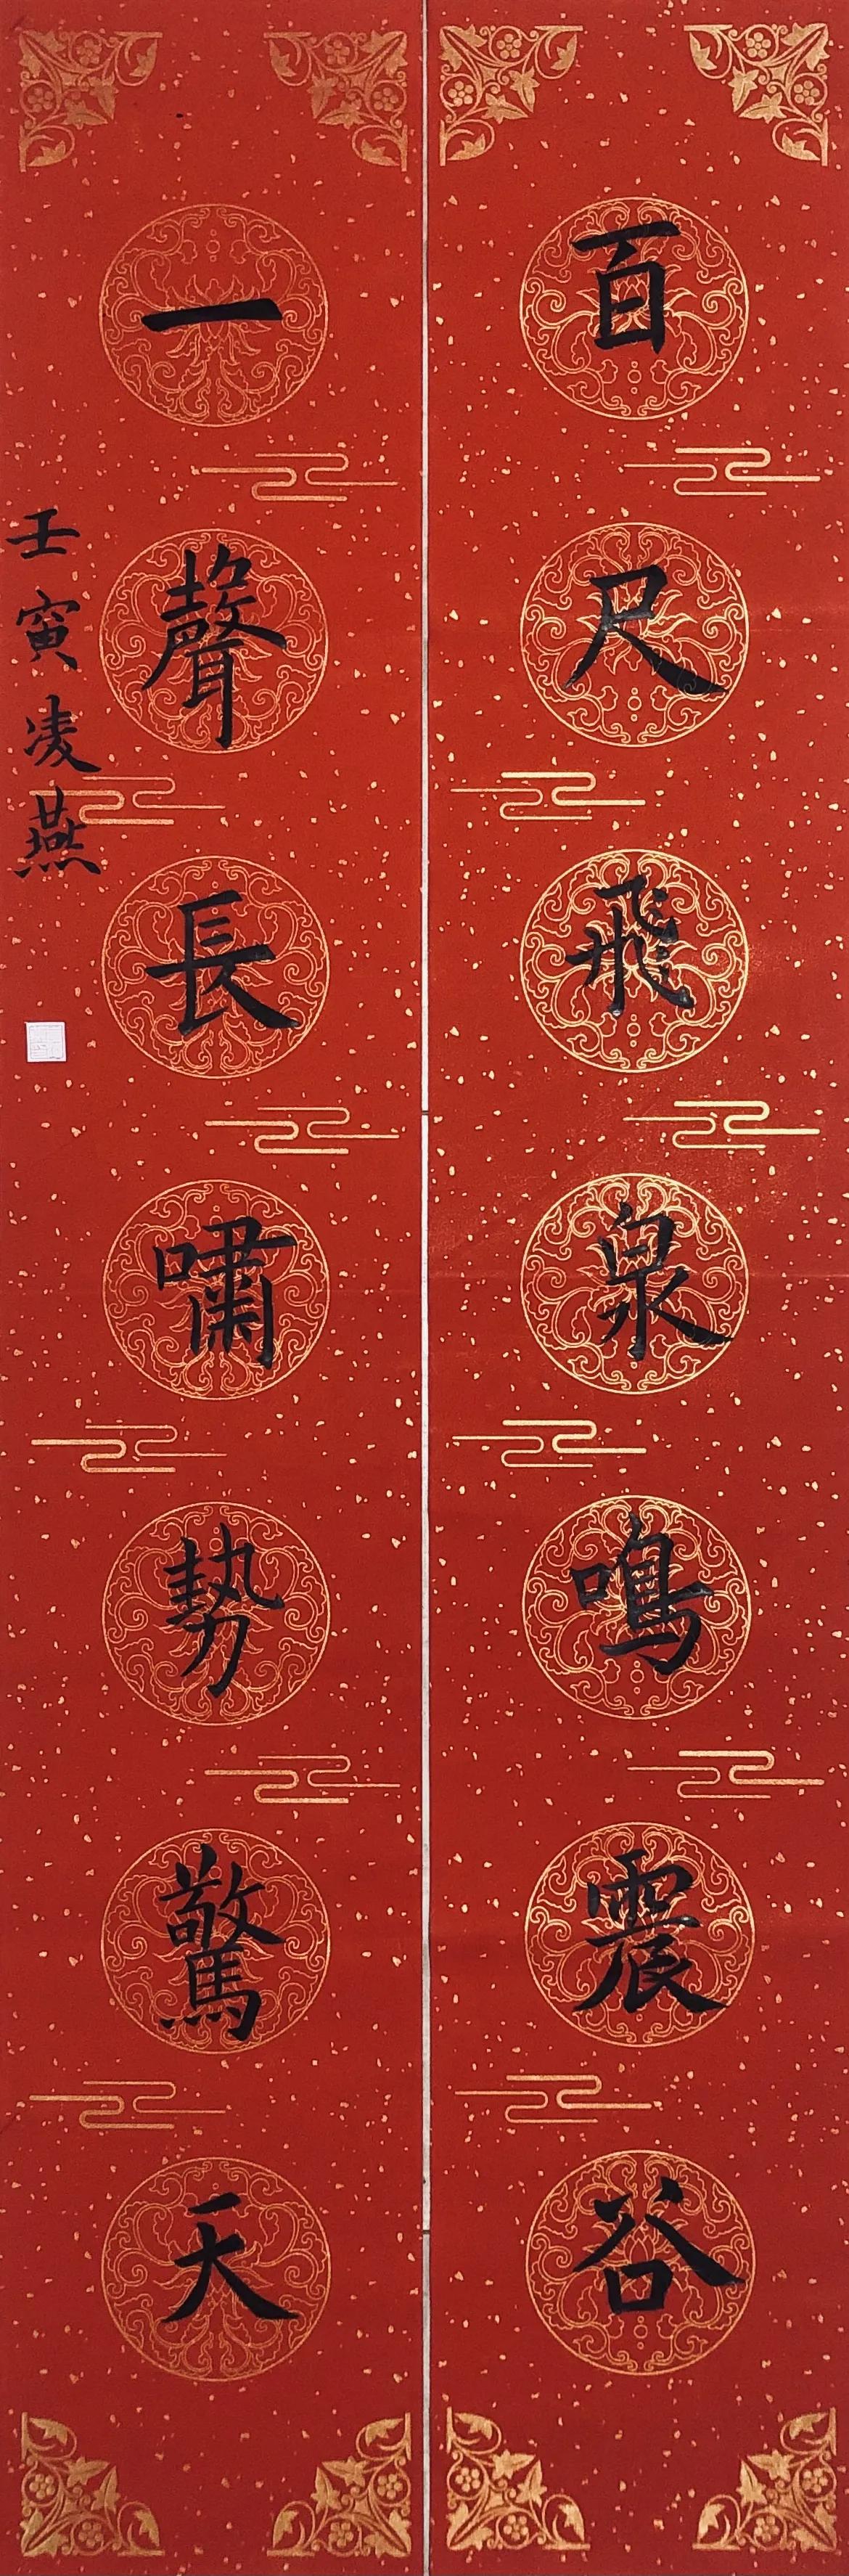 百尺飛泉鳴震谷
一聲長嘯勢驚天
壬寅凌燕